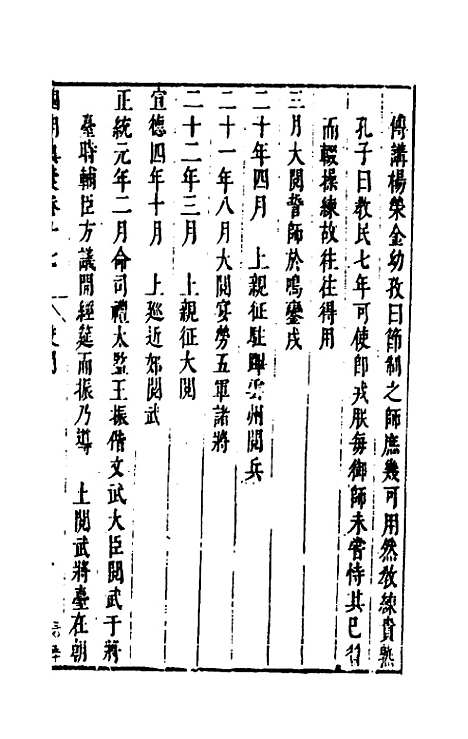 傅講楊榮金幼孜曰節制之師庶幾可用然教練貴熟
孔子曰教民七年可使即戎朕每御師未嘗恃其已習
而輟操練故往往得用
三月大閱誓師於鳴鑾戍
二十年四月　上親征駐蹕雲州閱兵
二十一年八月大閱宴勞五軍諸將
二十二年三月　上親征大閱
宣德四年十月　上廵近郊閱武
正統元年二月命司禮太監王振偕文武大臣閱武于將
臺時輔臣方議開經筵而振乃導　上閱武將臺在朝